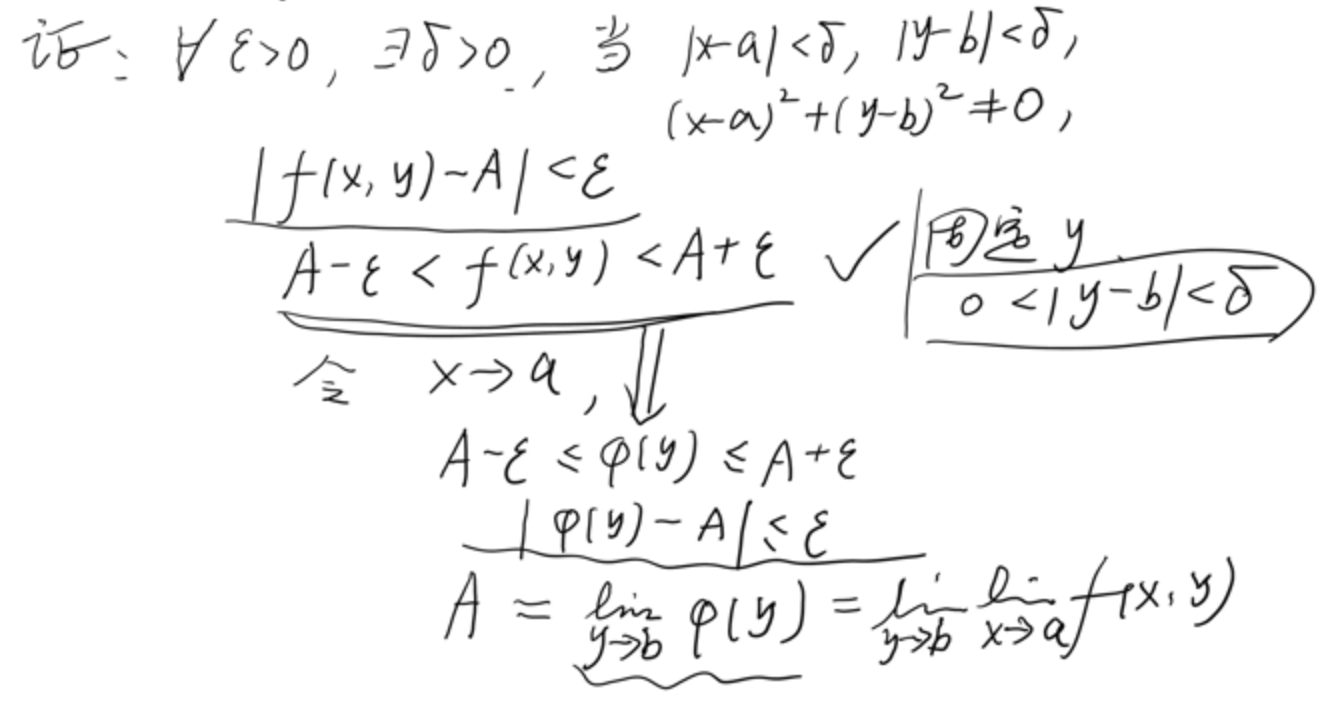 证: ∀ ε>0, ∃δ>0, 当 |x-a|<δ, |y-b|<δ,
(x-a)²+(y-b)²≠0,
|f(x,y)-A|<ε
A-ε < f(x,y) < A+ε ✓
固定 y
0<|y-b|<δ
令 x→a, ⇓
A-ε ≤ φ(y) ≤ A+ε
|φ(y)-A|≤ε
A = lim_{y→b} φ(y) = lim_{y→b} lim_{x→a} f(x,y)